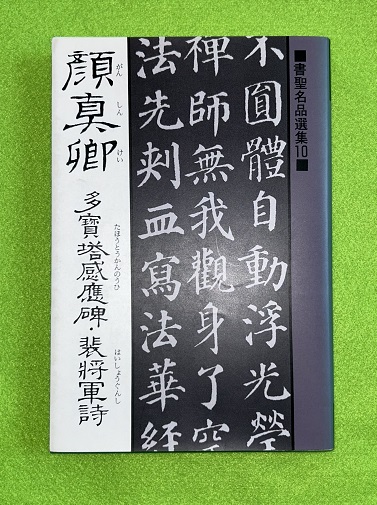 ■書聖名品選集10■
不圓體自動浮光瑩
禪師無我觀身了空
法先刾血寫法華經
顏真卿
がん しん けい
多寶塔感應碑・裴將軍詩
たほうとうかんのうひ はいしょうぐんし